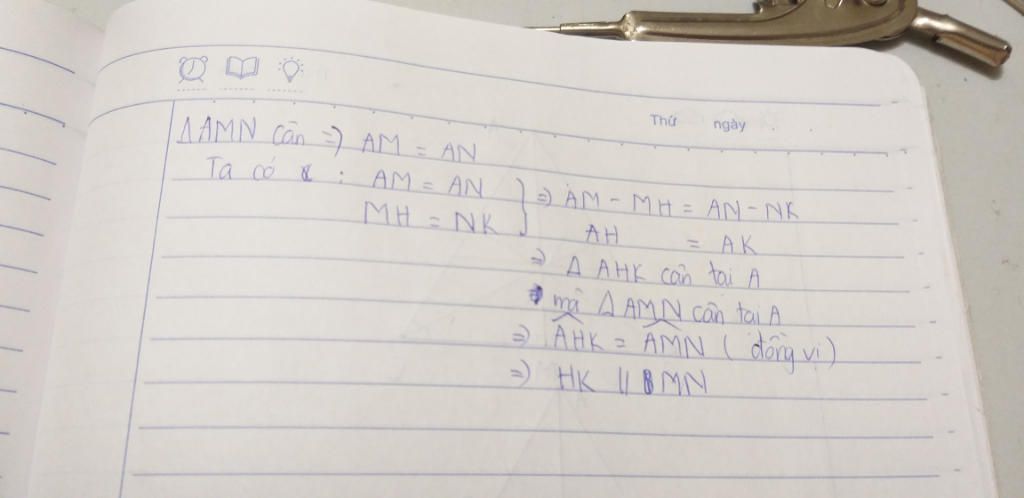 Thứ ngày
ΔAMN cân => AM = AN
Ta có : AM = AN
MH = NK
=> AM - MH = AN - NK
AH = AK
=> Δ AHK cân tại A
mà Δ AMN cân tại A
=> \widehat{AHK} = \widehat{AMN} ( đồng vị )
=> HK || MN